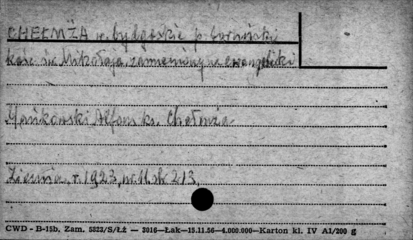 CHEŁMŻA w. bydgoskie p. toruński
kośc. św. Mikołaja, zamieniony na ewangelicki
Mańkowski Alfons ks. Chełmża
Ziemia, r. 1923, nr 11, str. 213
CWD - B-15b, Zam. 5823/S/Łż — 3016—Łak—15.11.56—4.000.000—Karton kl. IV A1/200 g